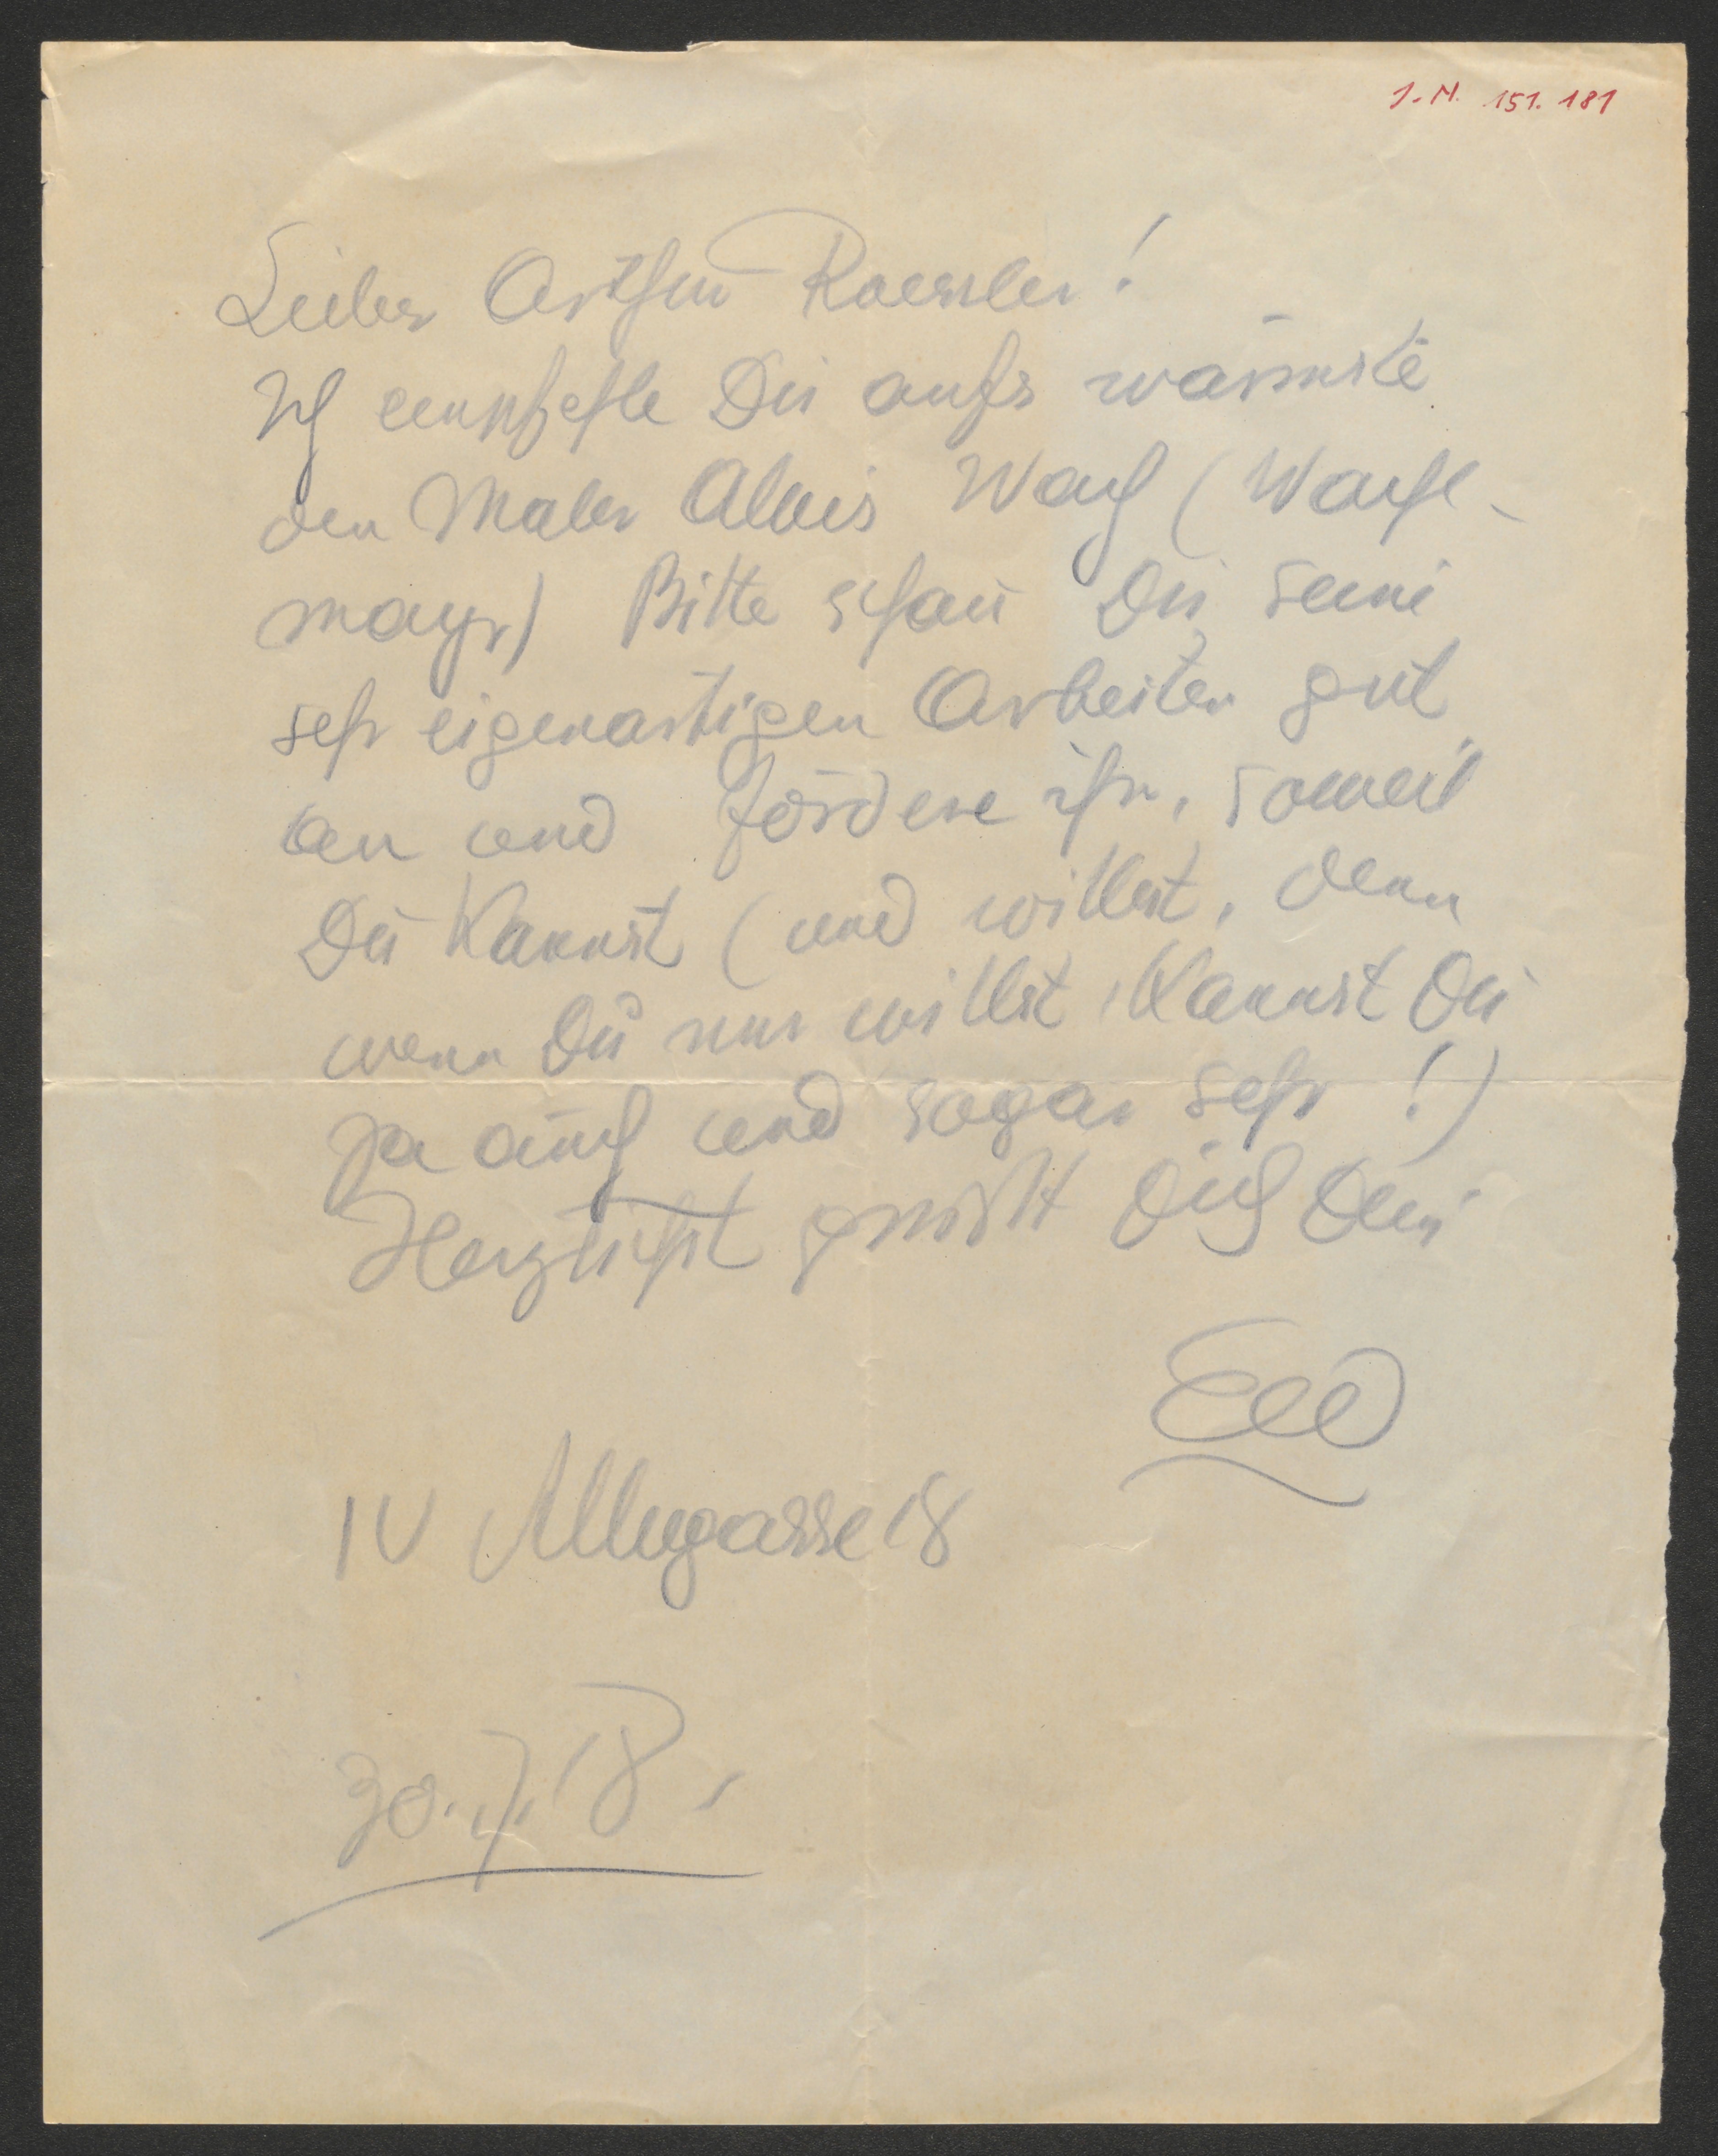 I.N. 151.181
Lieber Arthur Roessler!
Ich empfehle Dir aufs wärmste
den Maler Alois Wach (Wachl-
mayr) Bitte schau Dir seine
sehr eigenartigen Arbeiten gut
an und fördere ihn, soweit
Du kannst (und willst, denn
wenn Du nur willst, kannst Du
ja auch und sogar sehr!)
Herzlichst grüßt Dich Dein
IV Alleegasse 18
30. 18.